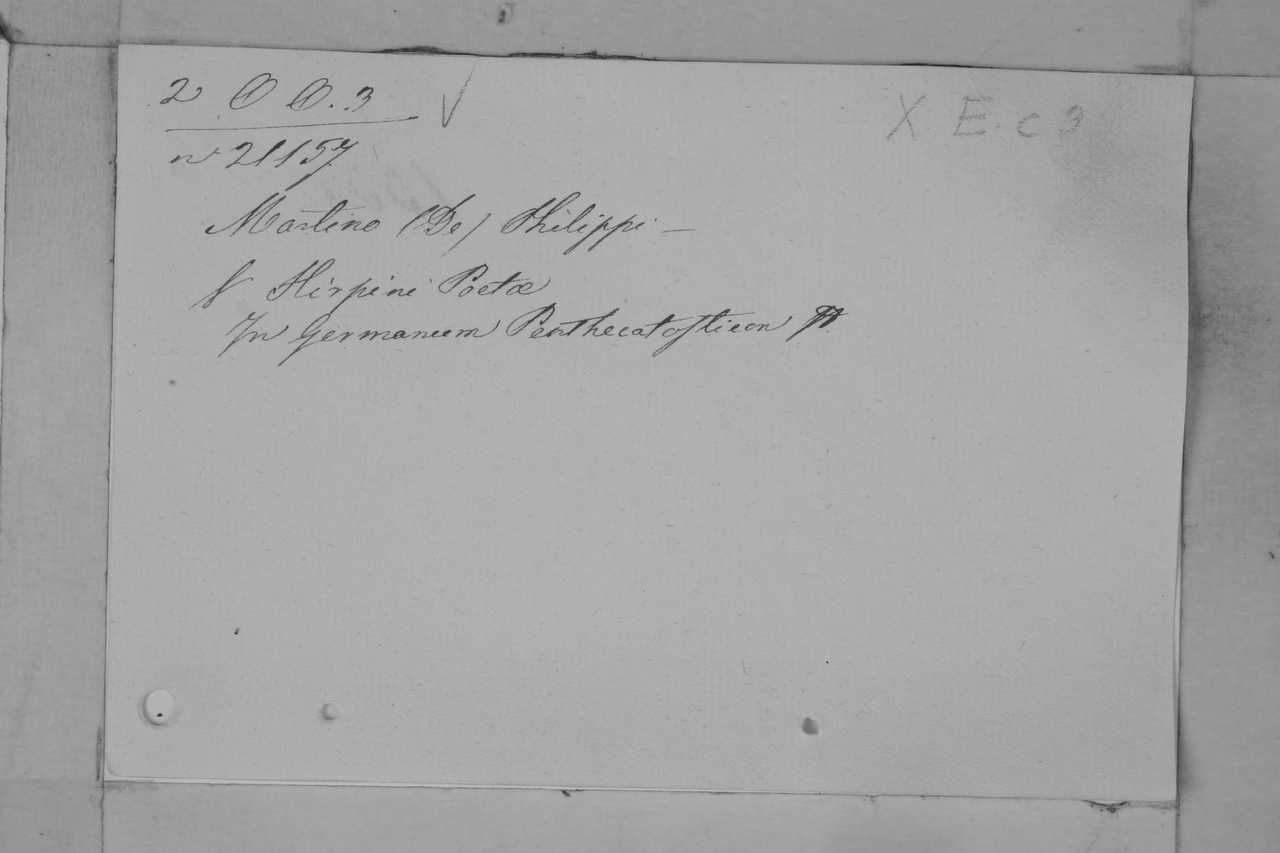 2 O O. 3
X E. c 3
n 21157
Martino (De) Philippi —
Hirpini Poetæ
In Germanum Penthecatosticon